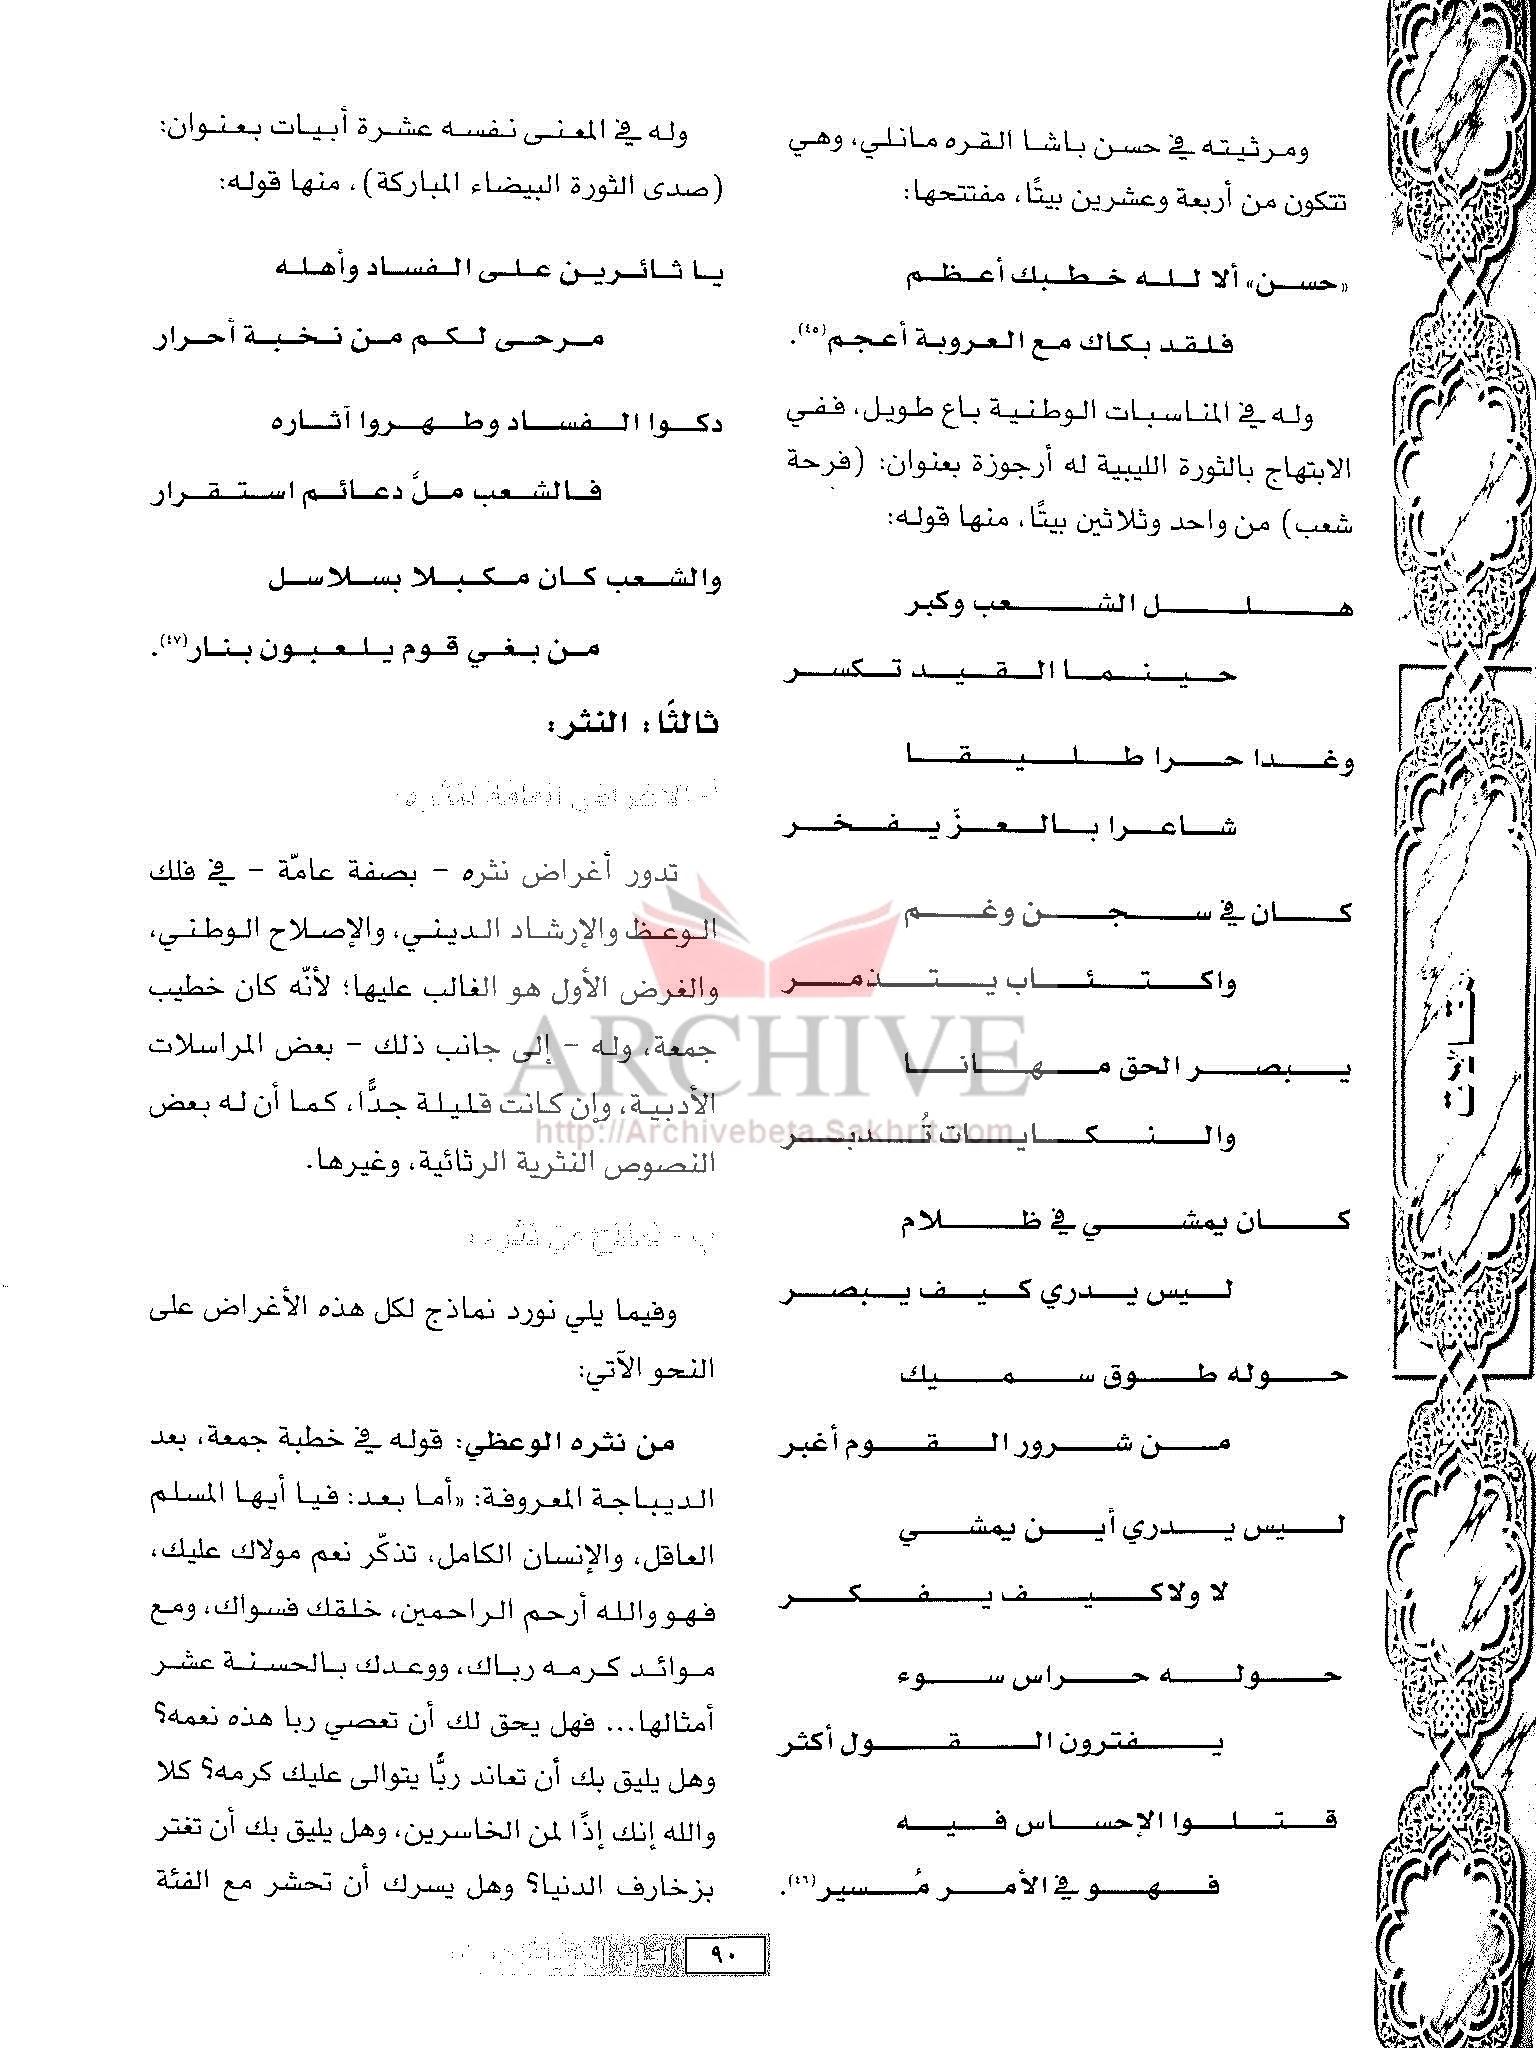 ومرثيته في حسن باشا القره مانلي، وهي
تتكون من أربعة وعشرين بيتًا، مفتتحها:
«حسن» ألا لله خطبك أعظم
فلقد بكاك مع العروبة أعجم(٤٥).
وله في المناسبات الوطنية باع طويل، ففي
الابتهاج بالثورة الليبية له أرجوزة بعنوان: (فرحة
شعب) من واحد وثلاثين بيتًا، منها قوله:
هلل الشعب وكبر
حينما القيد تكسر
وغدا حرا طليقا
شاعرا بالعزّ يفخر
كان في سجن وغم
واكتئاب يتذمر
يبصر الحق مهانا
والنكايات تُدبر
كان يمشي في ظلام
ليس يدري كيف يبصر
حوله طوق سميك
من شرور القوم أغبر
ليس يدري أين يمشي
لا ولا كيف يفكر
حوله حراس سوء
يفترون القول أكثر
قتلوا الإحساس فيه
فهو في الأمر مُسير(٤٦).
وله في المعنى نفسه عشرة أبيات بعنوان:
(صدى الثورة البيضاء المباركة)، منها قوله:
يا ثائرين على الفساد وأهله
مرحى لكم من نخبة أحرار
دكوا الفساد وطهروا آثاره
فالشعب ملَّ دعائم استقرار
والشعب كان مكبلا بسلاسل
من بغي قوم يلعبون بنار(٤٧).
ثالثًا: النثر:
أ- الأغراض العامة لنثره:
تدور أغراض نثره – بصفة عامّة – في فلك
الوعظ والإرشاد الديني، والإصلاح الوطني،
والغرض الأول هو الغالب عليها؛ لأنّه كان خطيب
جمعة، وله – إلى جانب ذلك – بعض المراسلات
الأدبية، وإن كانت قليلة جدًّا، كما أن له بعض
النصوص النثرية الرثائية، وغيرها.
ب- نماذج من نثره:
وفيما يلي نورد نماذج لكل هذه الأغراض على
النحو الآتي:
من نثره الوعظي: قوله في خطبة جمعة، بعد
الديباجة المعروفة: «أما بعد: فيا أيها المسلم
العاقل، والإنسان الكامل، تذكّر نعم مولاك عليك،
فهو والله أرحم الراحمين، خلقك فسواك، ومع
موائد كرمه رباك، ووعدك بالحسنة عشر
أمثالها... فهل يحق لك أن تعصي ربا هذه نعمه؟
وهل يليق بك أن تعاند ربًّا يتوالى عليك كرمه؟ كلا
والله إنك إذًا لمن الخاسرين، وهل يليق بك أن تغتر
بزخارف الدنيا؟ وهل يسرك أن تحشر مع الفئة
مقالات
ARCHIVE
http://Archivebeta.Sakhrit.com
٩٠